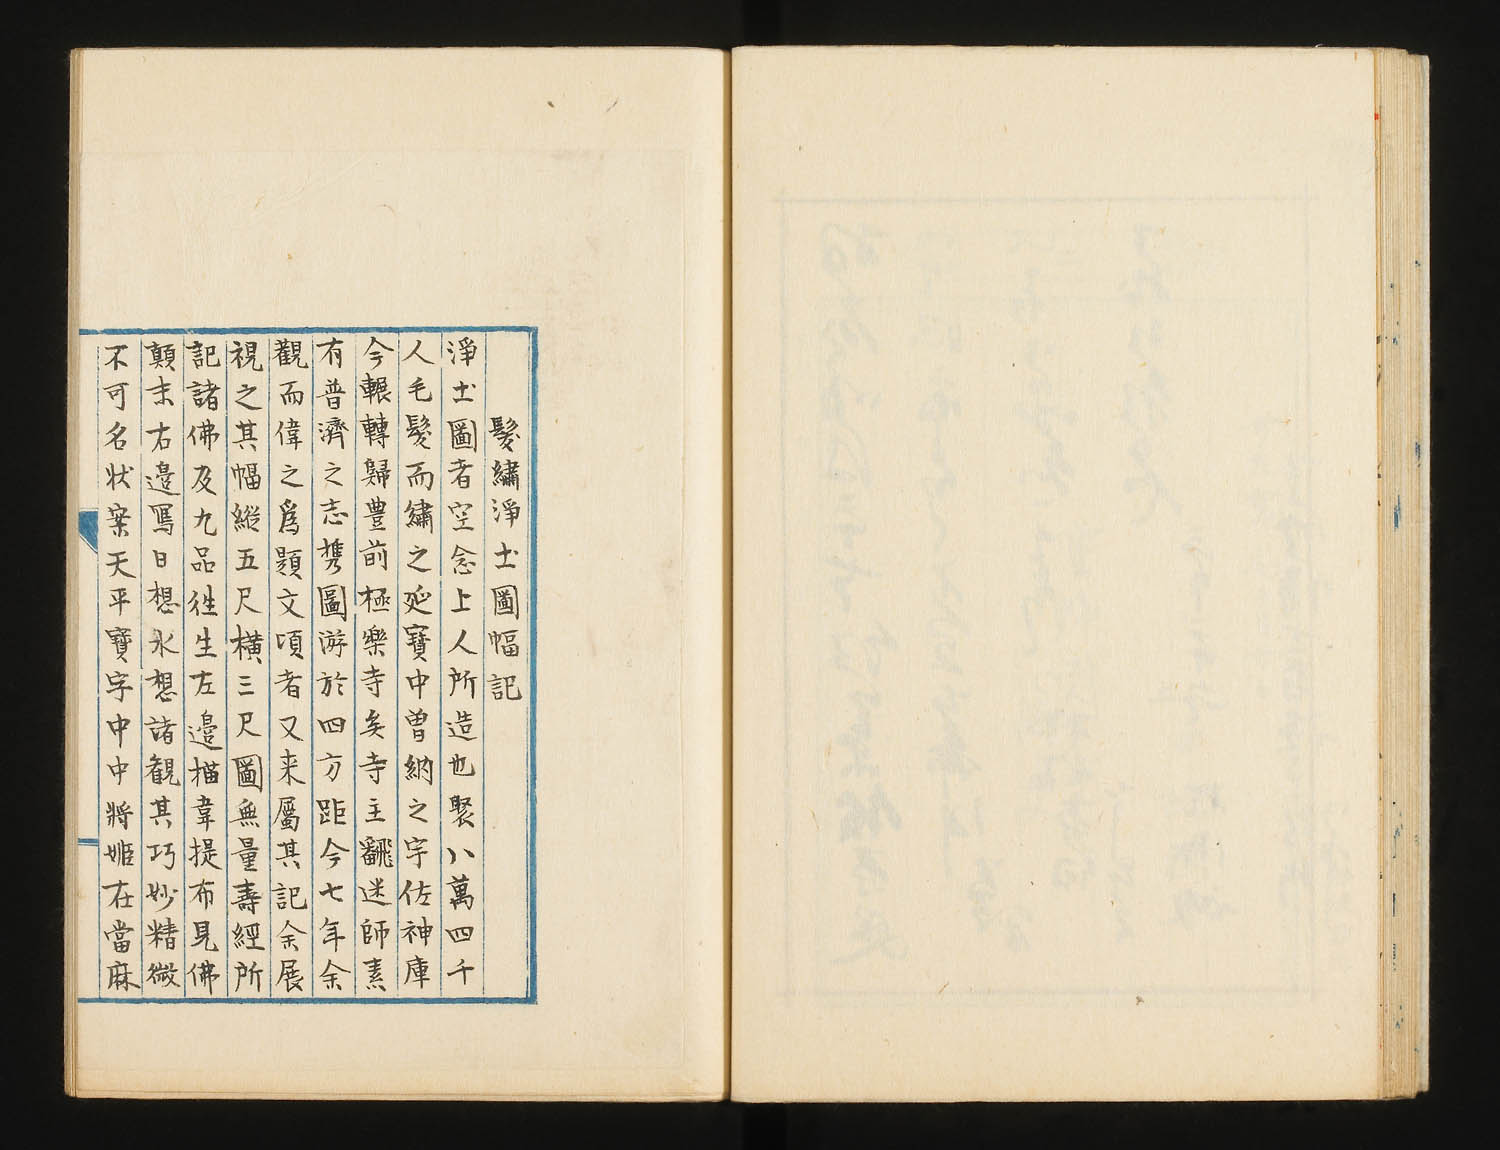 髮繡淨土圖幅記
淨土圖者空念上人所造也聚八萬四千
人毛髮而繡之延寶中曽納之宇佐神庫
今輾轉歸豊前極樂寺矣寺主飜迷師素
有普濟之志携圖游於四方距今七年余
觀而偉之爲題文頃者又来屬其記余展
視之其幅縱五尺横三尺圖無量壽經所
記諸佛及九品徃生左邉描韋提布見佛
顛末右邉寫日想氷想諸観其巧妙精微
不可名状案天平寶字中中將姫在當麻